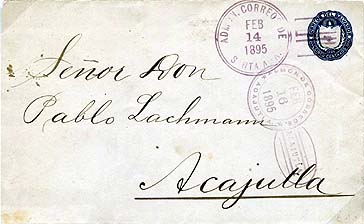 ADMON. CORREOS DE
FEB
14
1895
SANTA ANA
Señor Don
Pablo Lachmann
FEB
16
1895
Acajutla